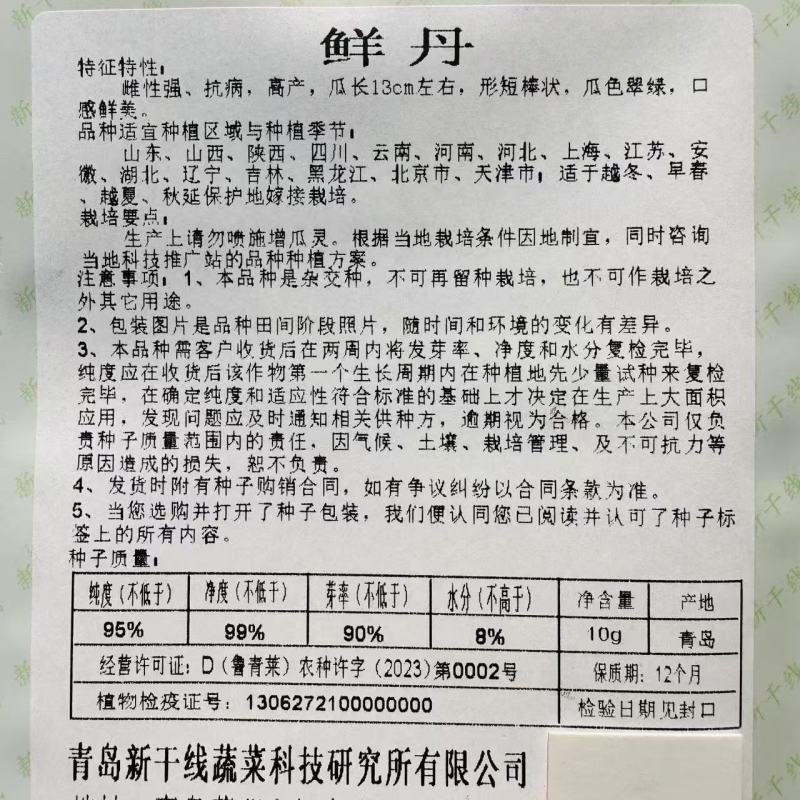 鲜丹
特征特性：
雌性强、抗病，高产，瓜长13cm左右，形短棒状，瓜色翠绿，口
感鲜美。
品种适宜种植区域与种植季节：
山东、山西、陕西、四川、云南、河南、河北、上海、江苏、安
徽、湖北、辽宁、吉林、黑龙江、北京市、天津市；适于越冬、早春
、越夏、秋延保护地嫁接栽培。
栽培要点：
生产上请勿喷施增瓜灵。根据当地栽培条件因地制宜，同时咨询
当地科技推广站的品种种植方案。
注意事项：1、本品种是杂交种，不可再留种栽培，也不可作栽培之
外其它用途。
2、包装图片是品种田间阶段照片，随时间和环境的变化有差异。
3、本品种需客户收货后在两周内将发芽率、净度和水分复检完毕，
纯度应在收货后该作物第一个生长周期内在种植地先少量试种来复检
完毕，在确定纯度和适应性符合标准的基础上才决定在生产上大面积
应用，发现问题应及时通知相关供种方，逾期视为合格。本公司仅负
责种子质量范围内的责任，因气候、土壤、栽培管理、及不可抗力等
原因造成的损失，恕不负责。
4、发货时附有种子购销合同，如有争议纠纷以合同条款为准。
5、当您选购并打开了种子包装，我们便认同您已阅读并认可了种子标
签上的所有内容。
种子质量：
纯度（不低于） 净度（不低于） 芽率（不低于） 水分（不高于） 净含量 产地
95% 99% 90% 8% 10g 青岛
经营许可证：D（鲁青莱）农种许字（2023）第0002号 保质期：12个月
植物检疫证号：1306272100000000 检验日期见封口
青岛新干线蔬菜科技研究所有限公司